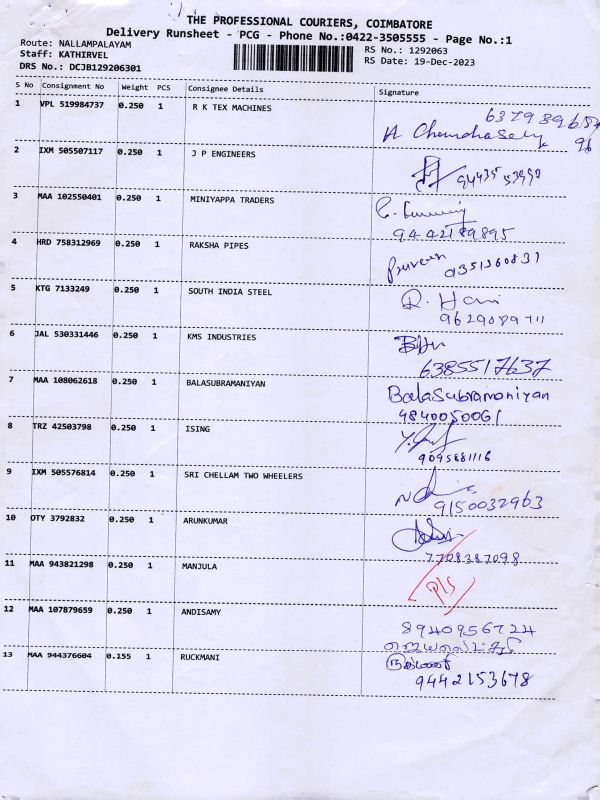 THE PROFESSIONAL COURIERS, COIMBATORE
Delivery Runsheet - PCG - Phone No.:0422-3505555 - Page No.:1
Route: NALLAMPALAYAM RS No.: 1292063
Staff: KATHIRVEL RS Date: 19-Dec-2023
DRS No.: DCJB129206301
S No Consignment No Weight PCS Consignee Details Signature
1 VPL 519984737 0.250 1 R K TEX MACHINES
2 IXM 505507117 0.250 1 J P ENGINEERS
3 MAA 102550401 0.250 1 MINIYAPPA TRADERS
4 HRD 758312969 0.250 1 RAKSHA PIPES
Praveen
5 KTG 7133249 0.250 1 SOUTH INDIA STEEL
R. Hari
9629089711
6 JAL 530331446 0.250 1 KMS INDUSTRIES
6385517637
7 MAA 108062618 0.250 1 BALASUBRAMANIYAN
BalaSubramaniyan
9840050061
8 TRZ 42503798 0.250 1 ISING
9095881116
9 IXM 505576814 0.250 1 SRI CHELLAM TWO WHEELERS
9150032963
10 OTY 3792832 0.250 1 ARUNKUMAR
7708387098
11 MAA 943821298 0.250 1 MANJULA
P/S
12 MAA 107879659 0.250 1 ANDISAMY
8940956724
13 MAA 944376604 0.155 1 RUCKMANI
9442153678